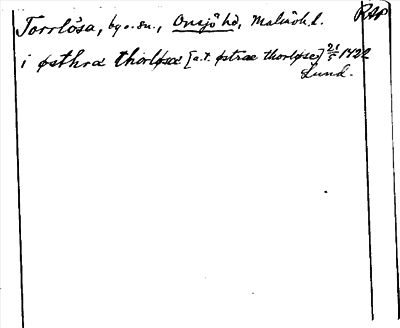 Torrlösa, by o. sn., Onsjö hd, Malmöh. l. RAP
i østhra thorløsæ [a.t. østræ thorløse] 21/5 1422
Lund.